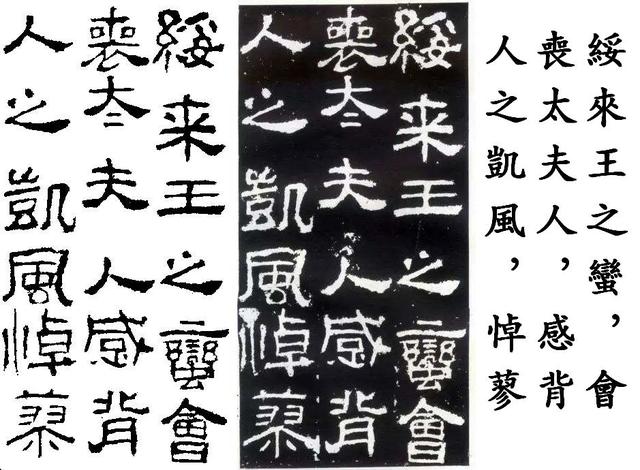 綏來王之蠻，會
喪太夫人，感背
人之凱風，悼蓼
綏来王之蠻會
喪太夫人感背
人之凱風悼蓼
綏来王之蠻會
喪太夫人感背
人之凱風悼蓼